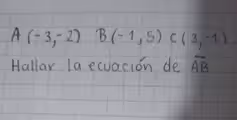 A (-3,-2) B(-1,5) C(3,-1)
Hallar la ecuación de A̅B̅